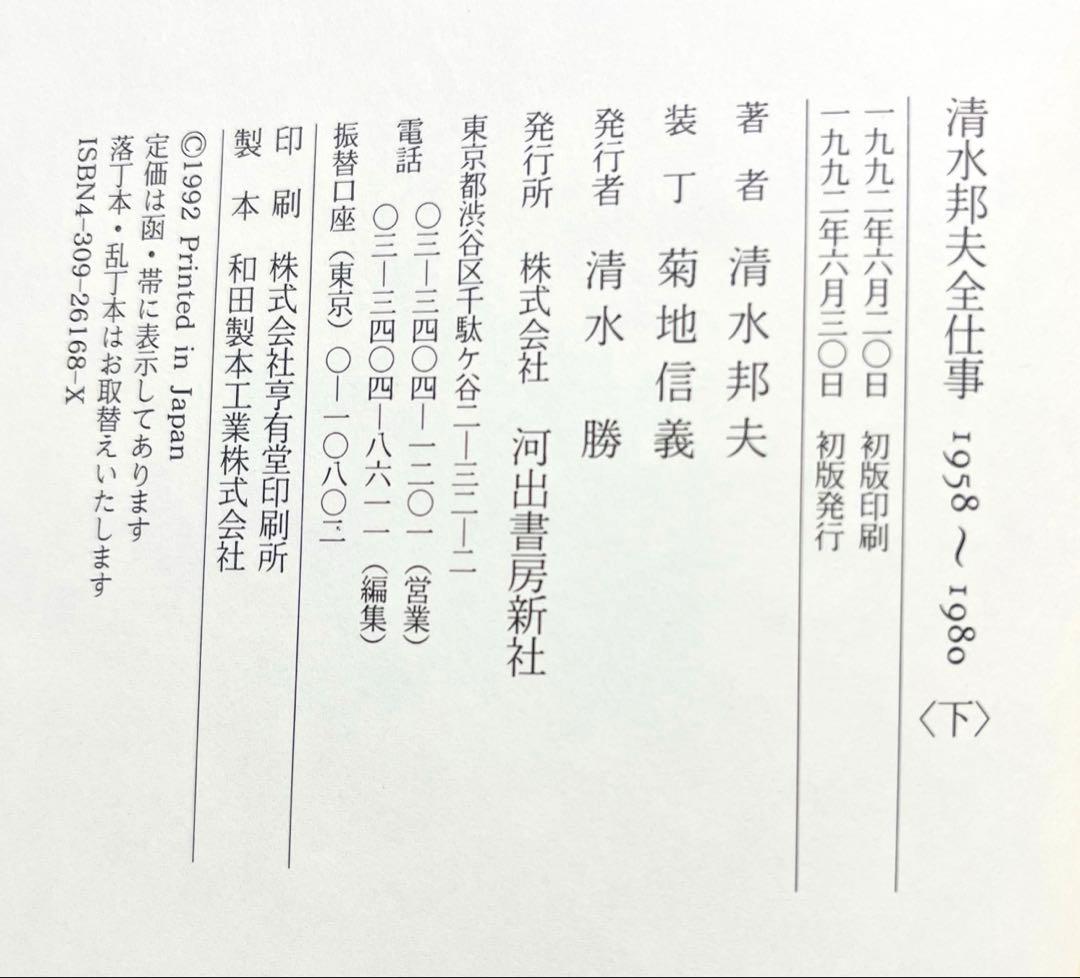 清水邦夫全仕事 1958〜1980〈下〉
一九九二年六月二〇日 初版印刷
一九九二年六月三〇日 初版発行
著者 清水邦夫
装丁 菊地信義
発行者 清水 勝
発行所 株式会社 河出書房新社
東京都渋谷区千駄ケ谷二―三二―二
電話 〇三―三四〇四―一二〇一（営業）
〇三―三四〇四―八六一一（編集）
振替口座（東京）〇―一〇八〇二
印刷 株式会社亨有堂印刷所
製本 和田製本工業株式会社
©1992 Printed in Japan
定価は函・帯に表示してあります
落丁本・乱丁本はお取替えいたします
ISBN4-309-26168-X